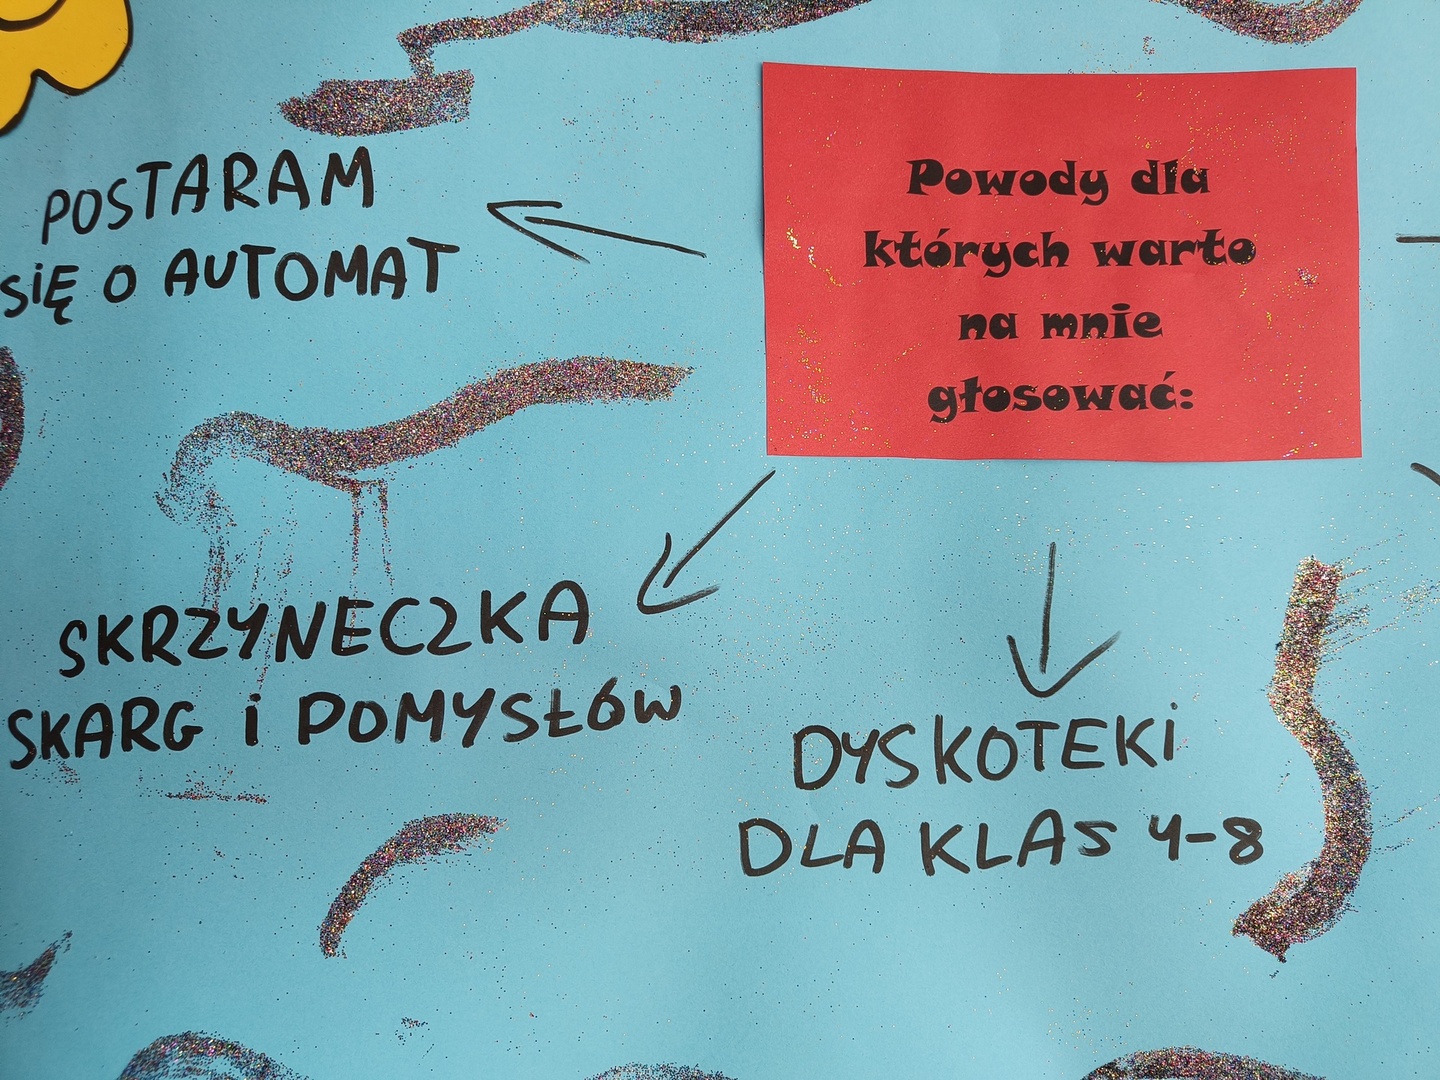 Powody dla
których warto
na mnie
głosować:
POSTARAM
SIĘ O AUTOMAT
SKRZYNECZKA
SKARG i POMYSŁÓW
DYSKOTEKi
DLA KLAS 4-8